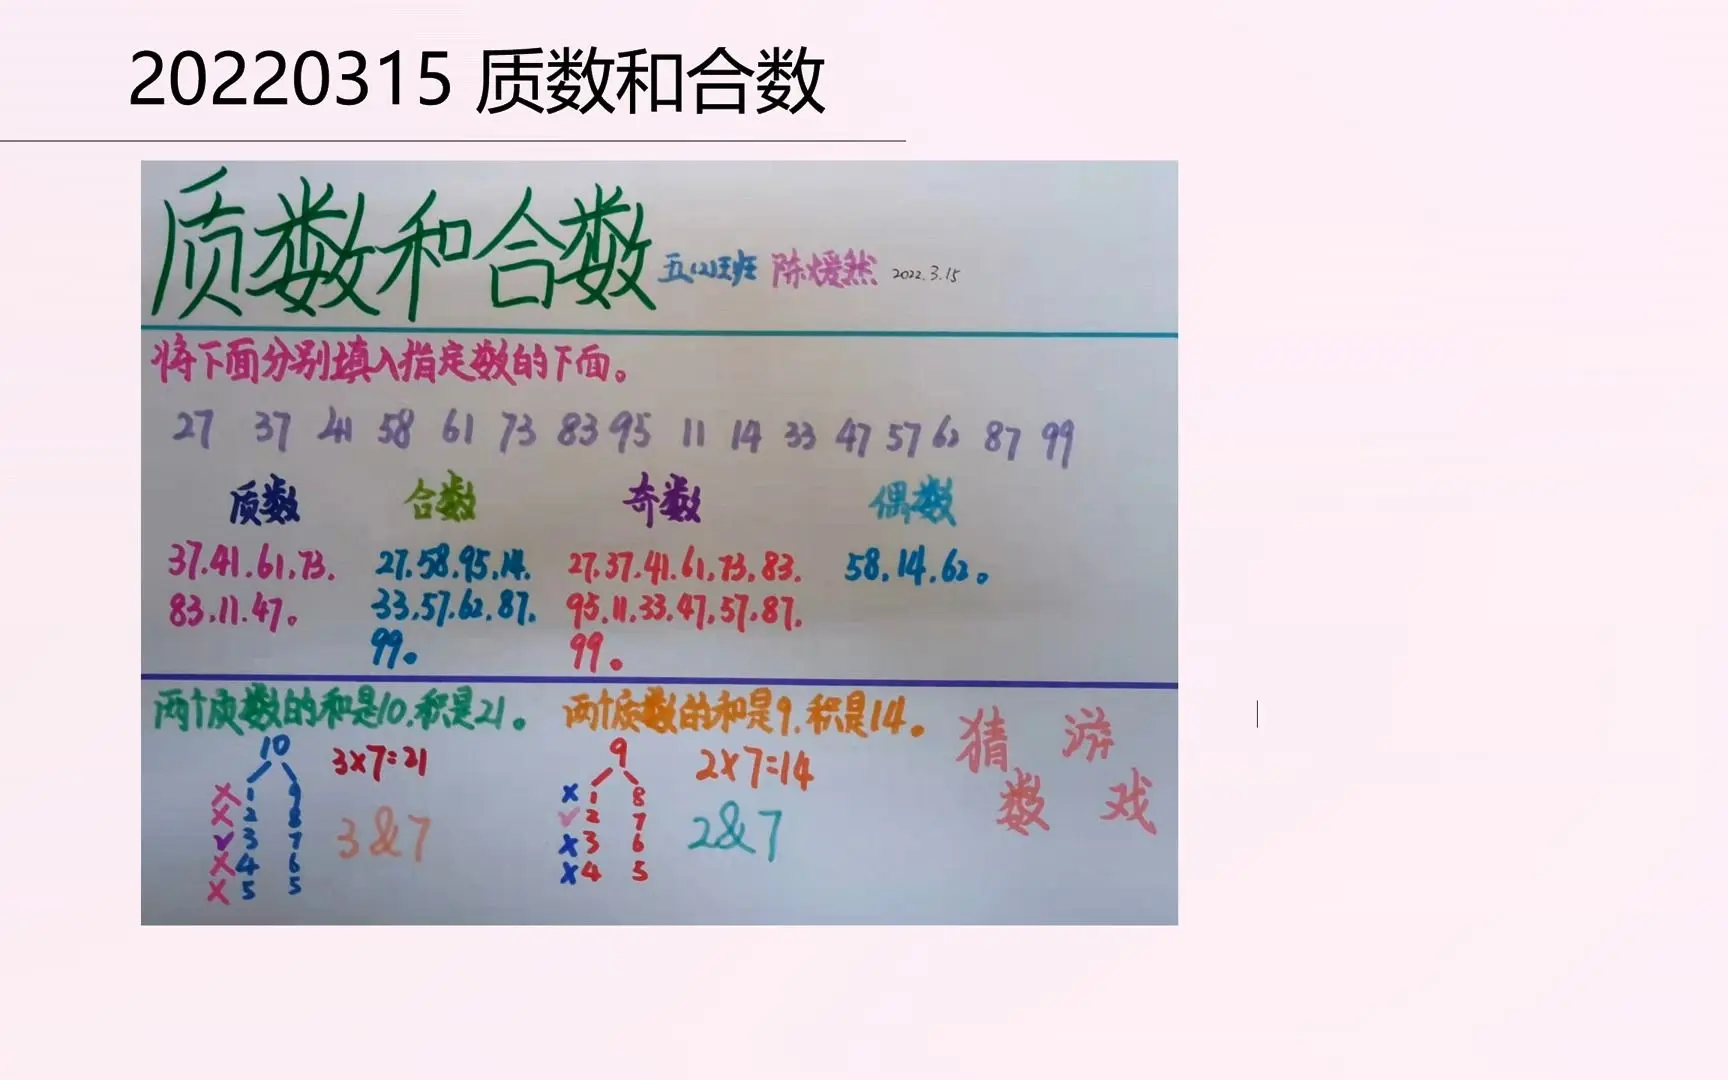 20220315 质数和合数
质数和合数 五(2)班 陈煖然 2022.3.15
将下面分别填入指定数的下面。
27 37 41 58 61 73 83 95 11 14 33 47 57 62 87 99
质数 合数 奇数 偶数
37.41.61.73. 27.58.95.14. 27.37.41.61.73.83. 58.14.62。
83.11.47。 33.57.62.87. 95.11.33.47.57.87.
99。 99。
两个质数的和是10,积是21。 两个质数的和是9,积是14。
10 3×7=21 9 2×7=14 猜 游
× 1 9 × 1 8 数 戏
× 2 8 3&7 ✓ 2 7 2&7
✓ 3 7 × 3 6
× 4 6 × 4 5
× 5 5